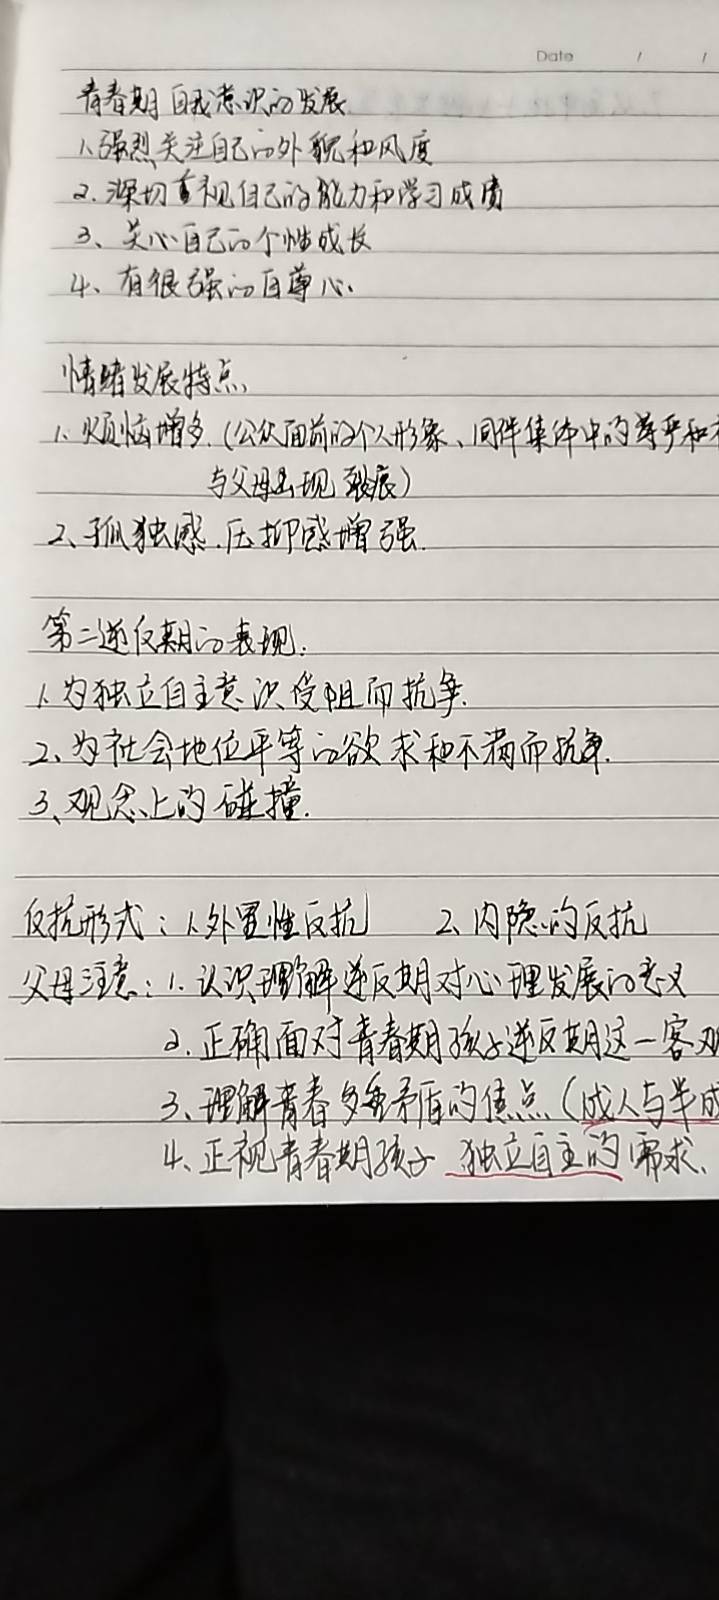 Date / /
青春期自我意识的发展
1、强烈关注自己的外貌和风度
2.深切重视自己的能力和学习成绩
3、关心自己的个性成长
4、有很强的自尊心.
情绪发展特点
1、烦恼增多.(公众面前的个人形象、同伴集体中的尊严和
与父母出现裂痕)
2、孤独感.压抑感增强.
第二逆反期的表现:
1.为独立自主意识受阻而抗争.
2、为社会地位平等的欲求和不满而抗争.
3、观念上的碰撞.
反抗形式:1.外显性反抗 2、内隐的反抗
父母注意:1.认识理解逆反期对心理发展的意义
2.正确面对青春期孩子逆反期这一客观
3、理解青春多重矛盾的焦点(成人与半成
4、正视青春期孩子独立自主的需求、